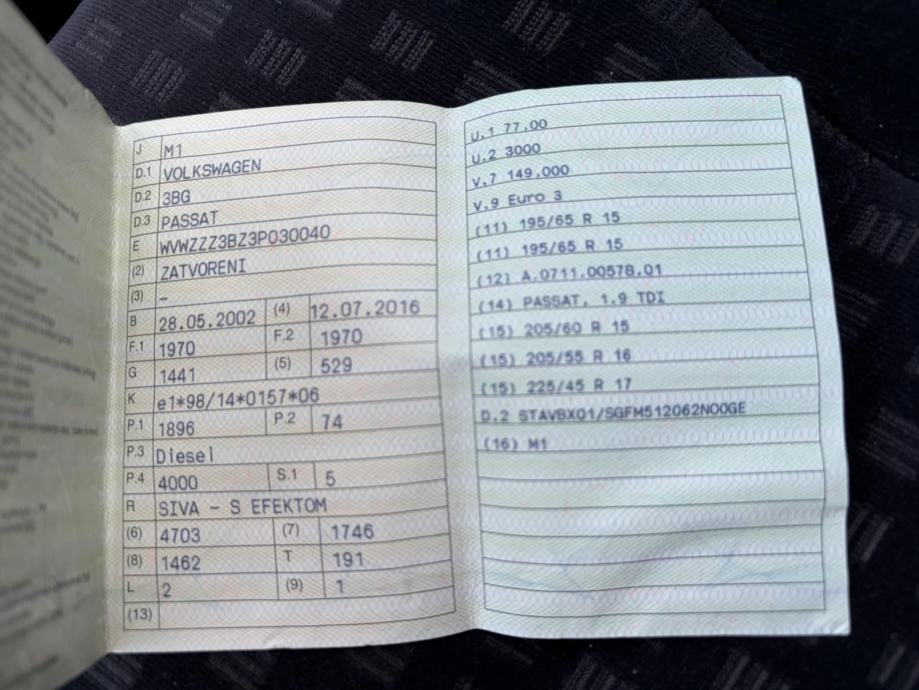 J M1
D.1 VOLKSWAGEN
D.2 3BG
D.3 PASSAT
E WVWZZZ3BZ3P030040
(2) ZATVORENI
(3) –
B 28.05.2002 (4) 12.07.2016
F.1 1970 F.2 1970
G 1441 (5) 529
K e1*98/14*0157*06
P.1 1896 P.2 74
P.3 Diesel
P.4 4000 S.1 5
R SIVA - S EFEKTOM
(6) 4703 (7) 1746
(8) 1462 T 191
L 2 (9) 1
(13)
U.1 77.00
U.2 3000
V.7 149.000
V.9 Euro 3
(11) 195/65 R 15
(11) 195/65 R 15
(12) A.0711.0057B.01
(14) PASSAT, 1.9 TDI
(15) 205/60 R 15
(15) 205/55 R 16
(15) 225/45 R 17
D.2 STAVBX01/SGFM512062N0OGE
(16) M1